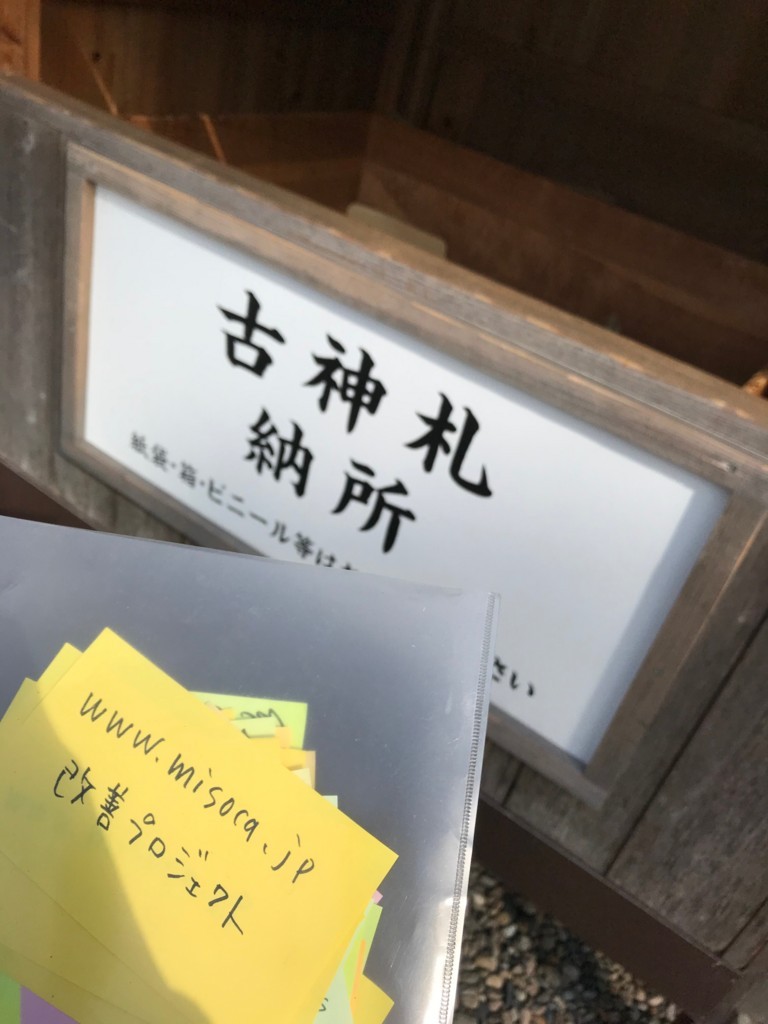 古神札
納所
紙袋・箱・ビニール等は
さい
www.misoca.jp
改善プロジェクト